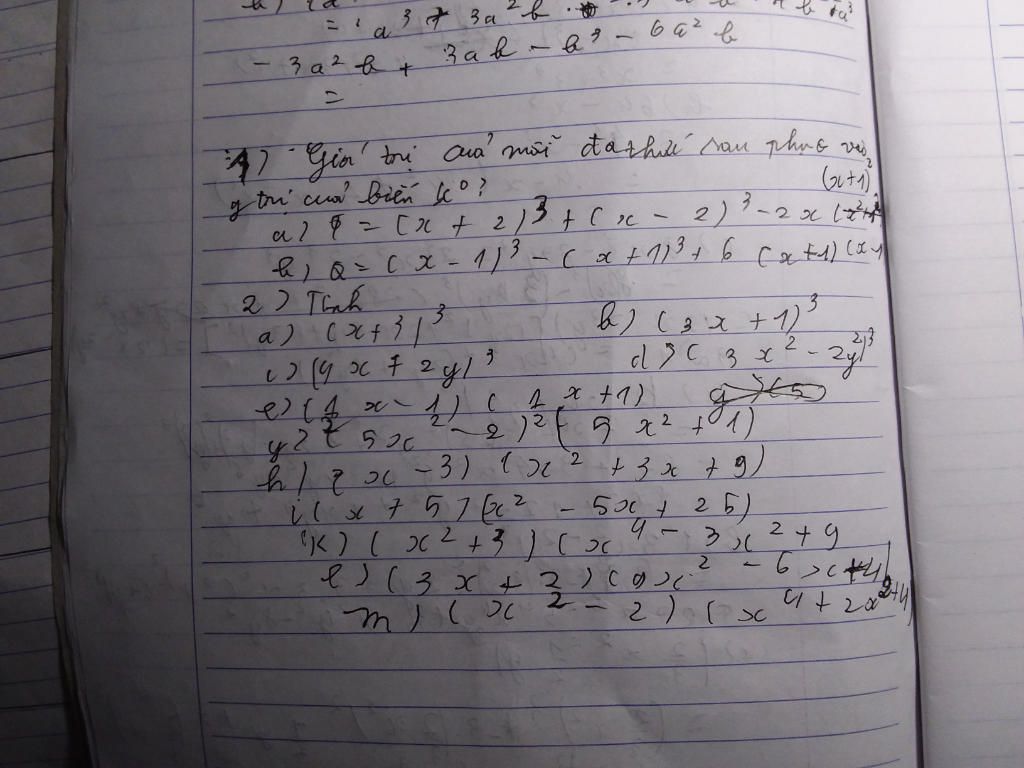 = a³ + 3a²b
- 3a²b + 3ab - b³ - 6a²b
=
1) Giá trị của mỗi đa thức sau phụ vào
g trị của biến k⁰? (x+1)
a) P = (x + 2)³ + (x - 2)³ - 2x
b) Q = (x - 1)³ - (x + 1)³ + 6 (x+1) (x-1
2) Tính
a) (x+3)³ b) (3x + 1)³
c) (4x + 2y)³ d) (3x² - 2y²)³
e) (1/2 x - 1) (1/2 x + 1)
g) (5x² - 2)² (5x² + 1)
h) (x - 3) (x² + 3x + 9)
i (x + 5) (x² - 5x + 25)
k) (x² + 3) (x⁴ - 3x² + 9
l) (3x + 2) (9x² - 6x + 4)
m) (x² - 2) (x⁴ + 2x² + 4)